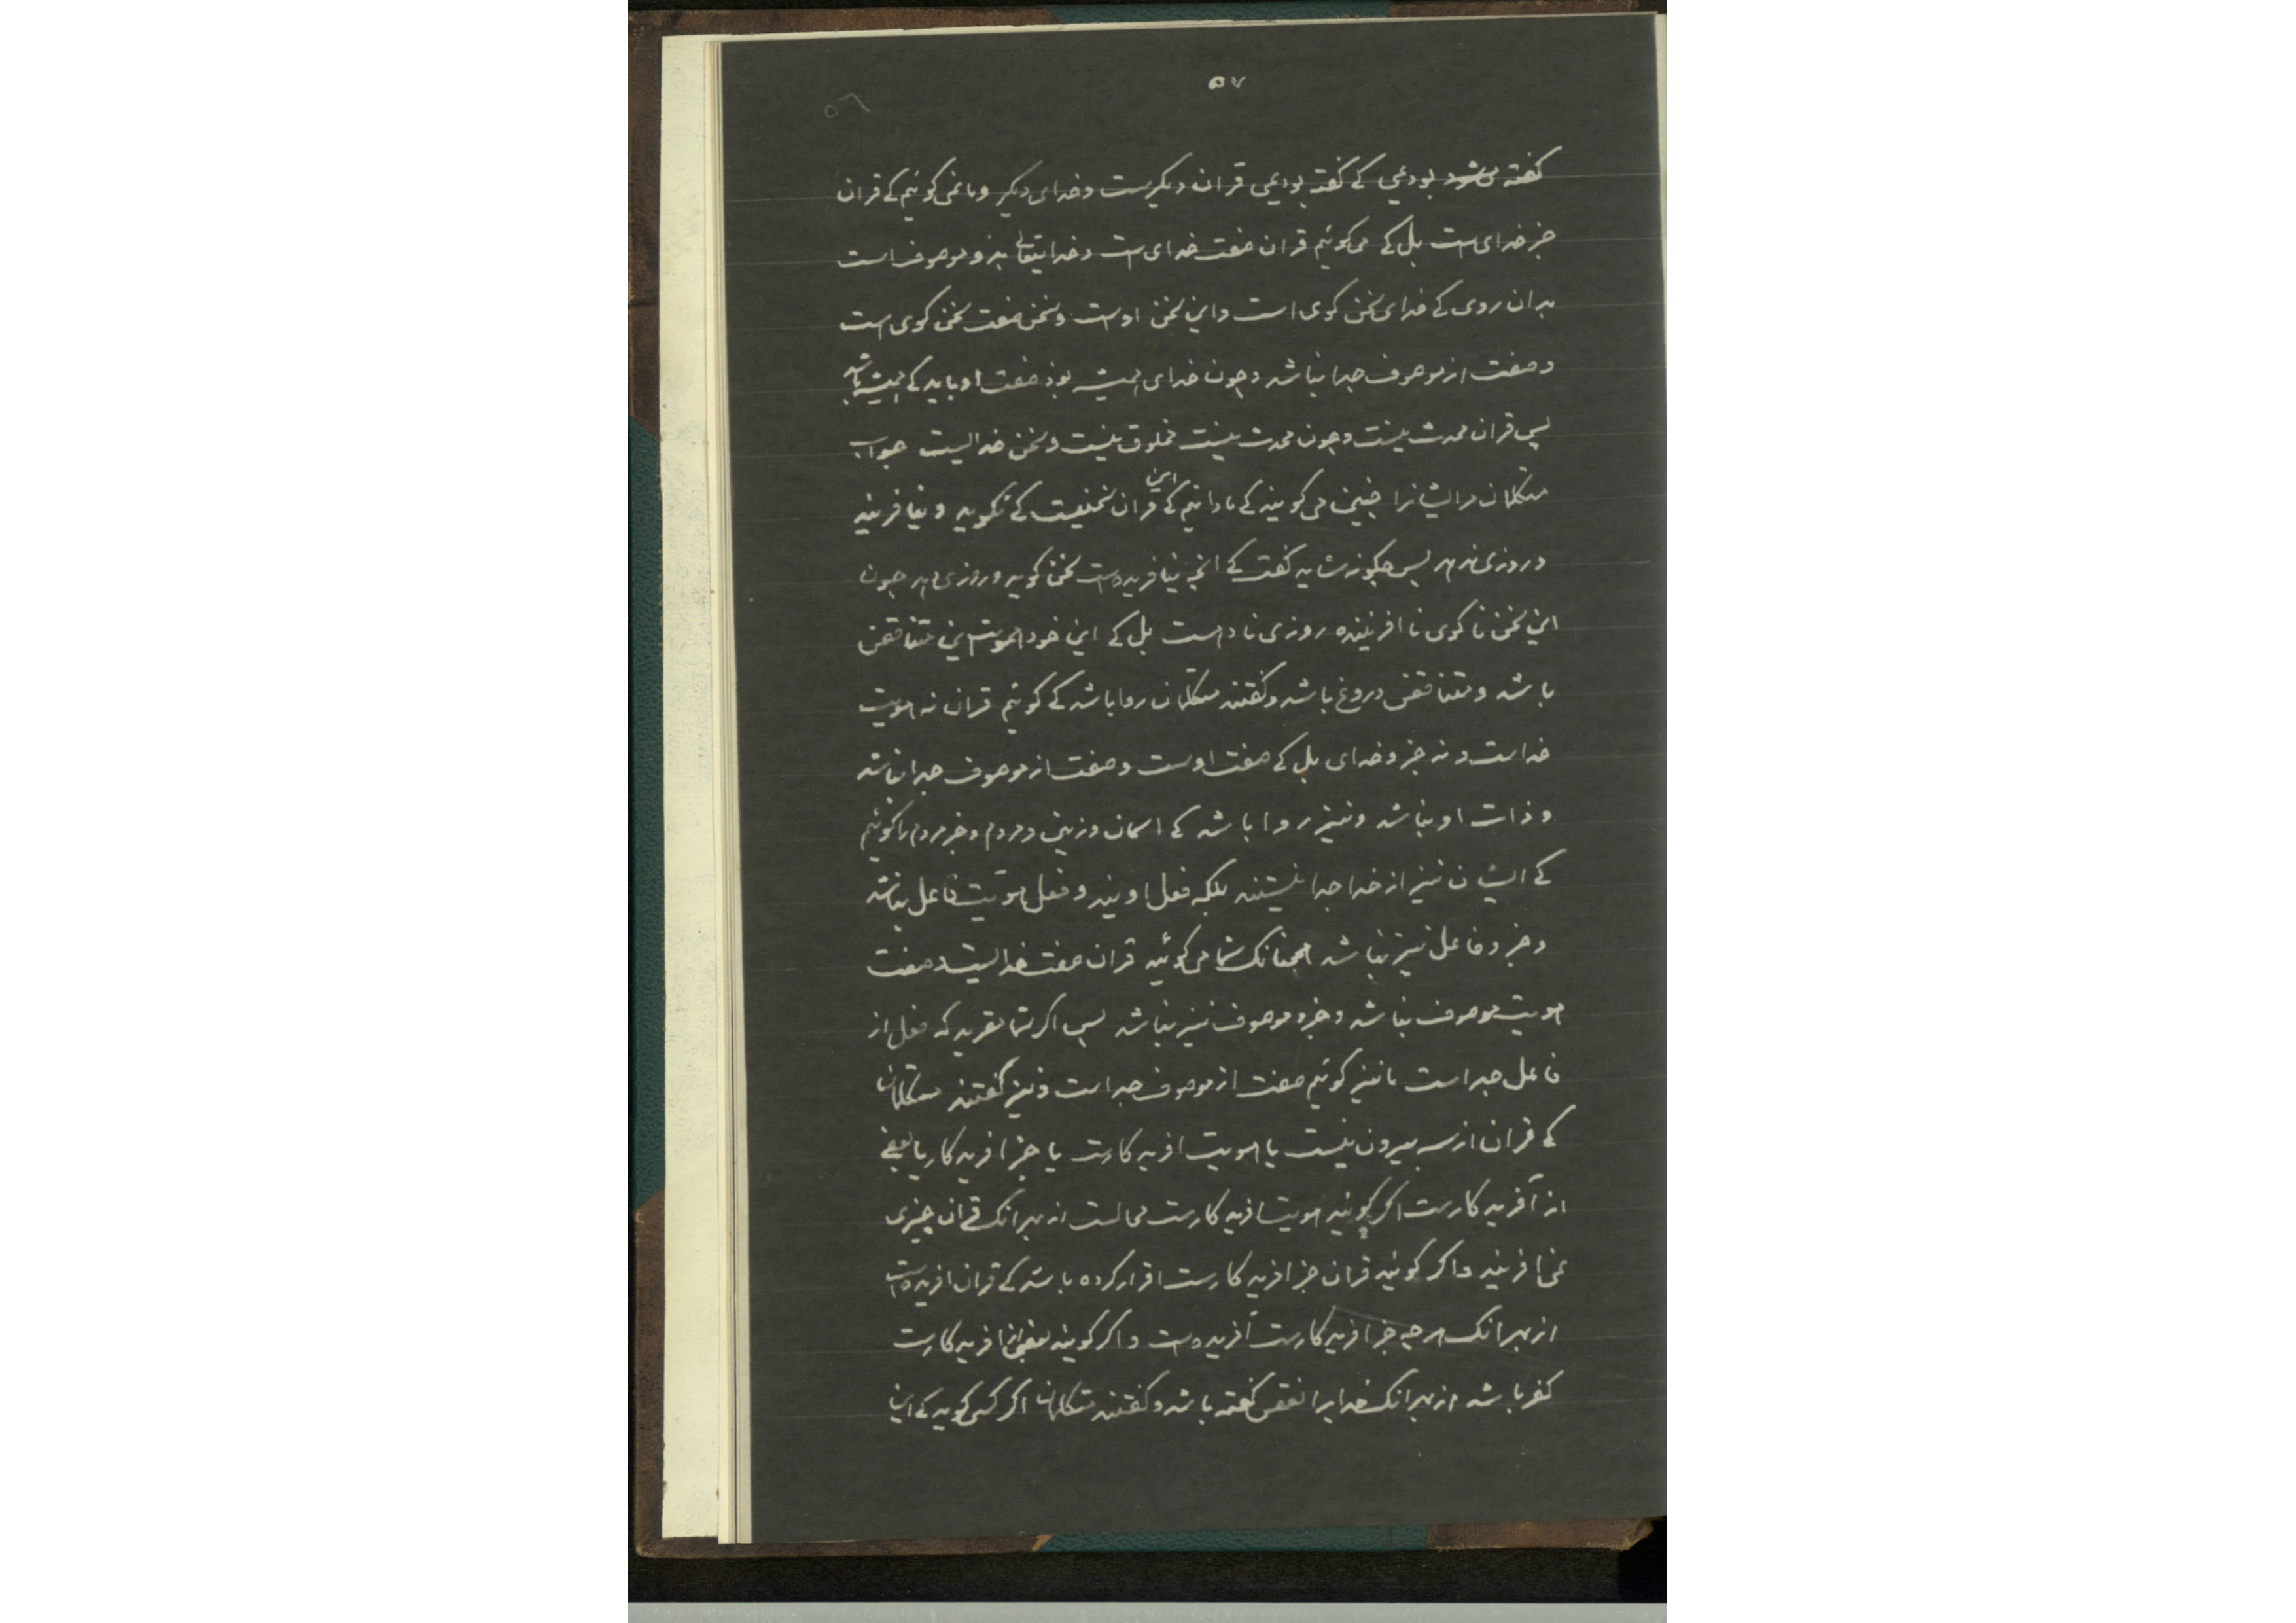 ۵۷
۵۶
گفته می‌شود بودیمی کے گفته بودیمی قران دیگرست و خدای دیگر و ما نمی گوئیم کے قران
جز خدای است بل کے می گوئیم قران صفت خدای ست و خدایتعالی بذو موصوف است
بدان روی کے خدای سخن گوی است و این سخن اوست و سخن صفت سخن گوی است
و صفت از موصوف جدا نباشد و چون خدای همیشه بوذ صفت او باید کے همیشه باشد
پس قران محدث نیست و چون محدث نیست مخلوق نیست و سخن خدایست جواب
متکلمان مر ایشانرا چنین می گویند کے ما دانیم کے این قران سخنیست کے نگوید و نیافریند
و روزی ندهد پس چگونه شاید گفت کے انچه نیافریدست سخن گوید و روزی دهد چون
این سخن نا گوی نا افریننده روزی نا دهست بل کے این خود هویت این متناقض
باشد و متناقض دروغ باشد و گفتند متکلمان روا باشد کے گوئیم قران نه هویت
خداست و نه جزو خدای بل کے صفت اوست و صفت از موصوف جدا نباشد
و ذات او نباشد و نیز روا باشد کے اسمان و زمین و مردم و جز مردم را گوئیم
کے ایشان نیز از خدا جدا نیستند بلکه فعل اویند و فعل هویت فاعل نباشد
و جزو فاعل نیز نباشد همچنانک شما می گوئید قران صفت خدایست و صفت
هویت موصوف نباشد و جزو موصوف نیز نباشد پس اگر شما مقرید که فعل از
فاعل جداست ما نیز گوئیم صفت از موصوف جداست و نیز گفتند متکلمان
کے قران از سه بیرون نیست یا هویت افریدگارست یا جز افریدگار یا بعضی
از آفریدگارست اگر گویند هویت افریدگارست محالست از بهر انک قران چیزی
نمی افریند و اگر گوئید قران جز افریدگارست اقرار کرده باشد کے قران افریدەاست
از بهر انک هر چه جز افریدگارست آفریده‌ست و اگر گویند بعضی از افریدگارست
کفر باشد از بهر انک خدایرا نقص گفته باشد و گفتند متکلمان اگر کسی گوید کے این